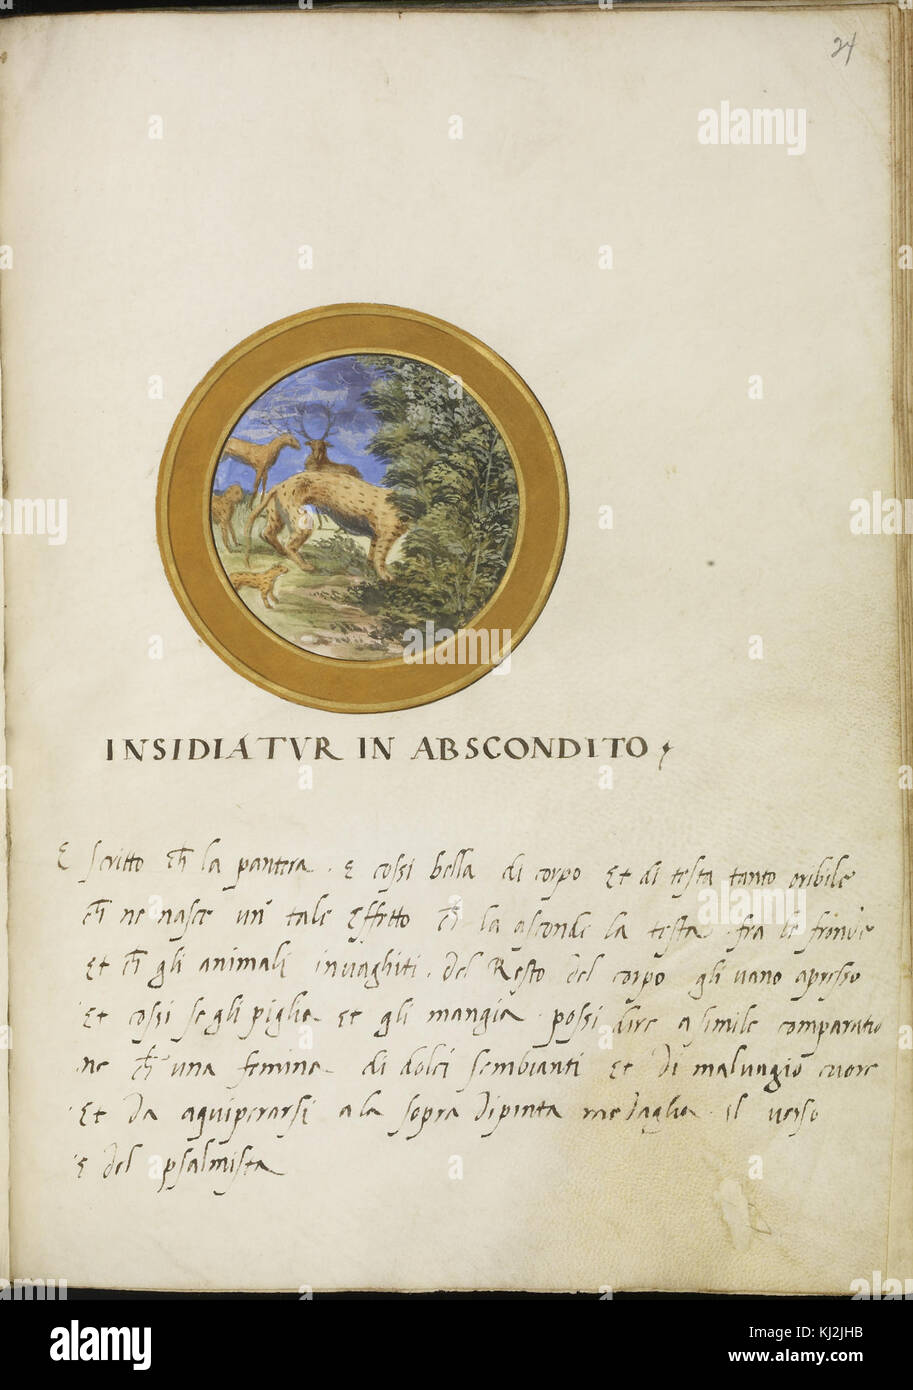 24
INSIDIATVR IN ABSCONDITO
E scritto ch̄ la pantera · e cossi bella di corpo et di testa tanto oribile
ch̄ ne nasce un tale effetto ch̄ la asconde la testa · fra le fronde
et ch̄ gli animali invaghiti · del Resto del corpo gli vano apresso
et cossi se gli piglia et gli mangia · possi dire a simile comparatio
ne ch̄ una femina di dolci sembianti et di malvagio cuore
et da aguiperarsi a la sopra dipinta medaglia · il verso
e del psalmista
alamy
alamy
Image ID: KJ2JHB
www.alamy.com